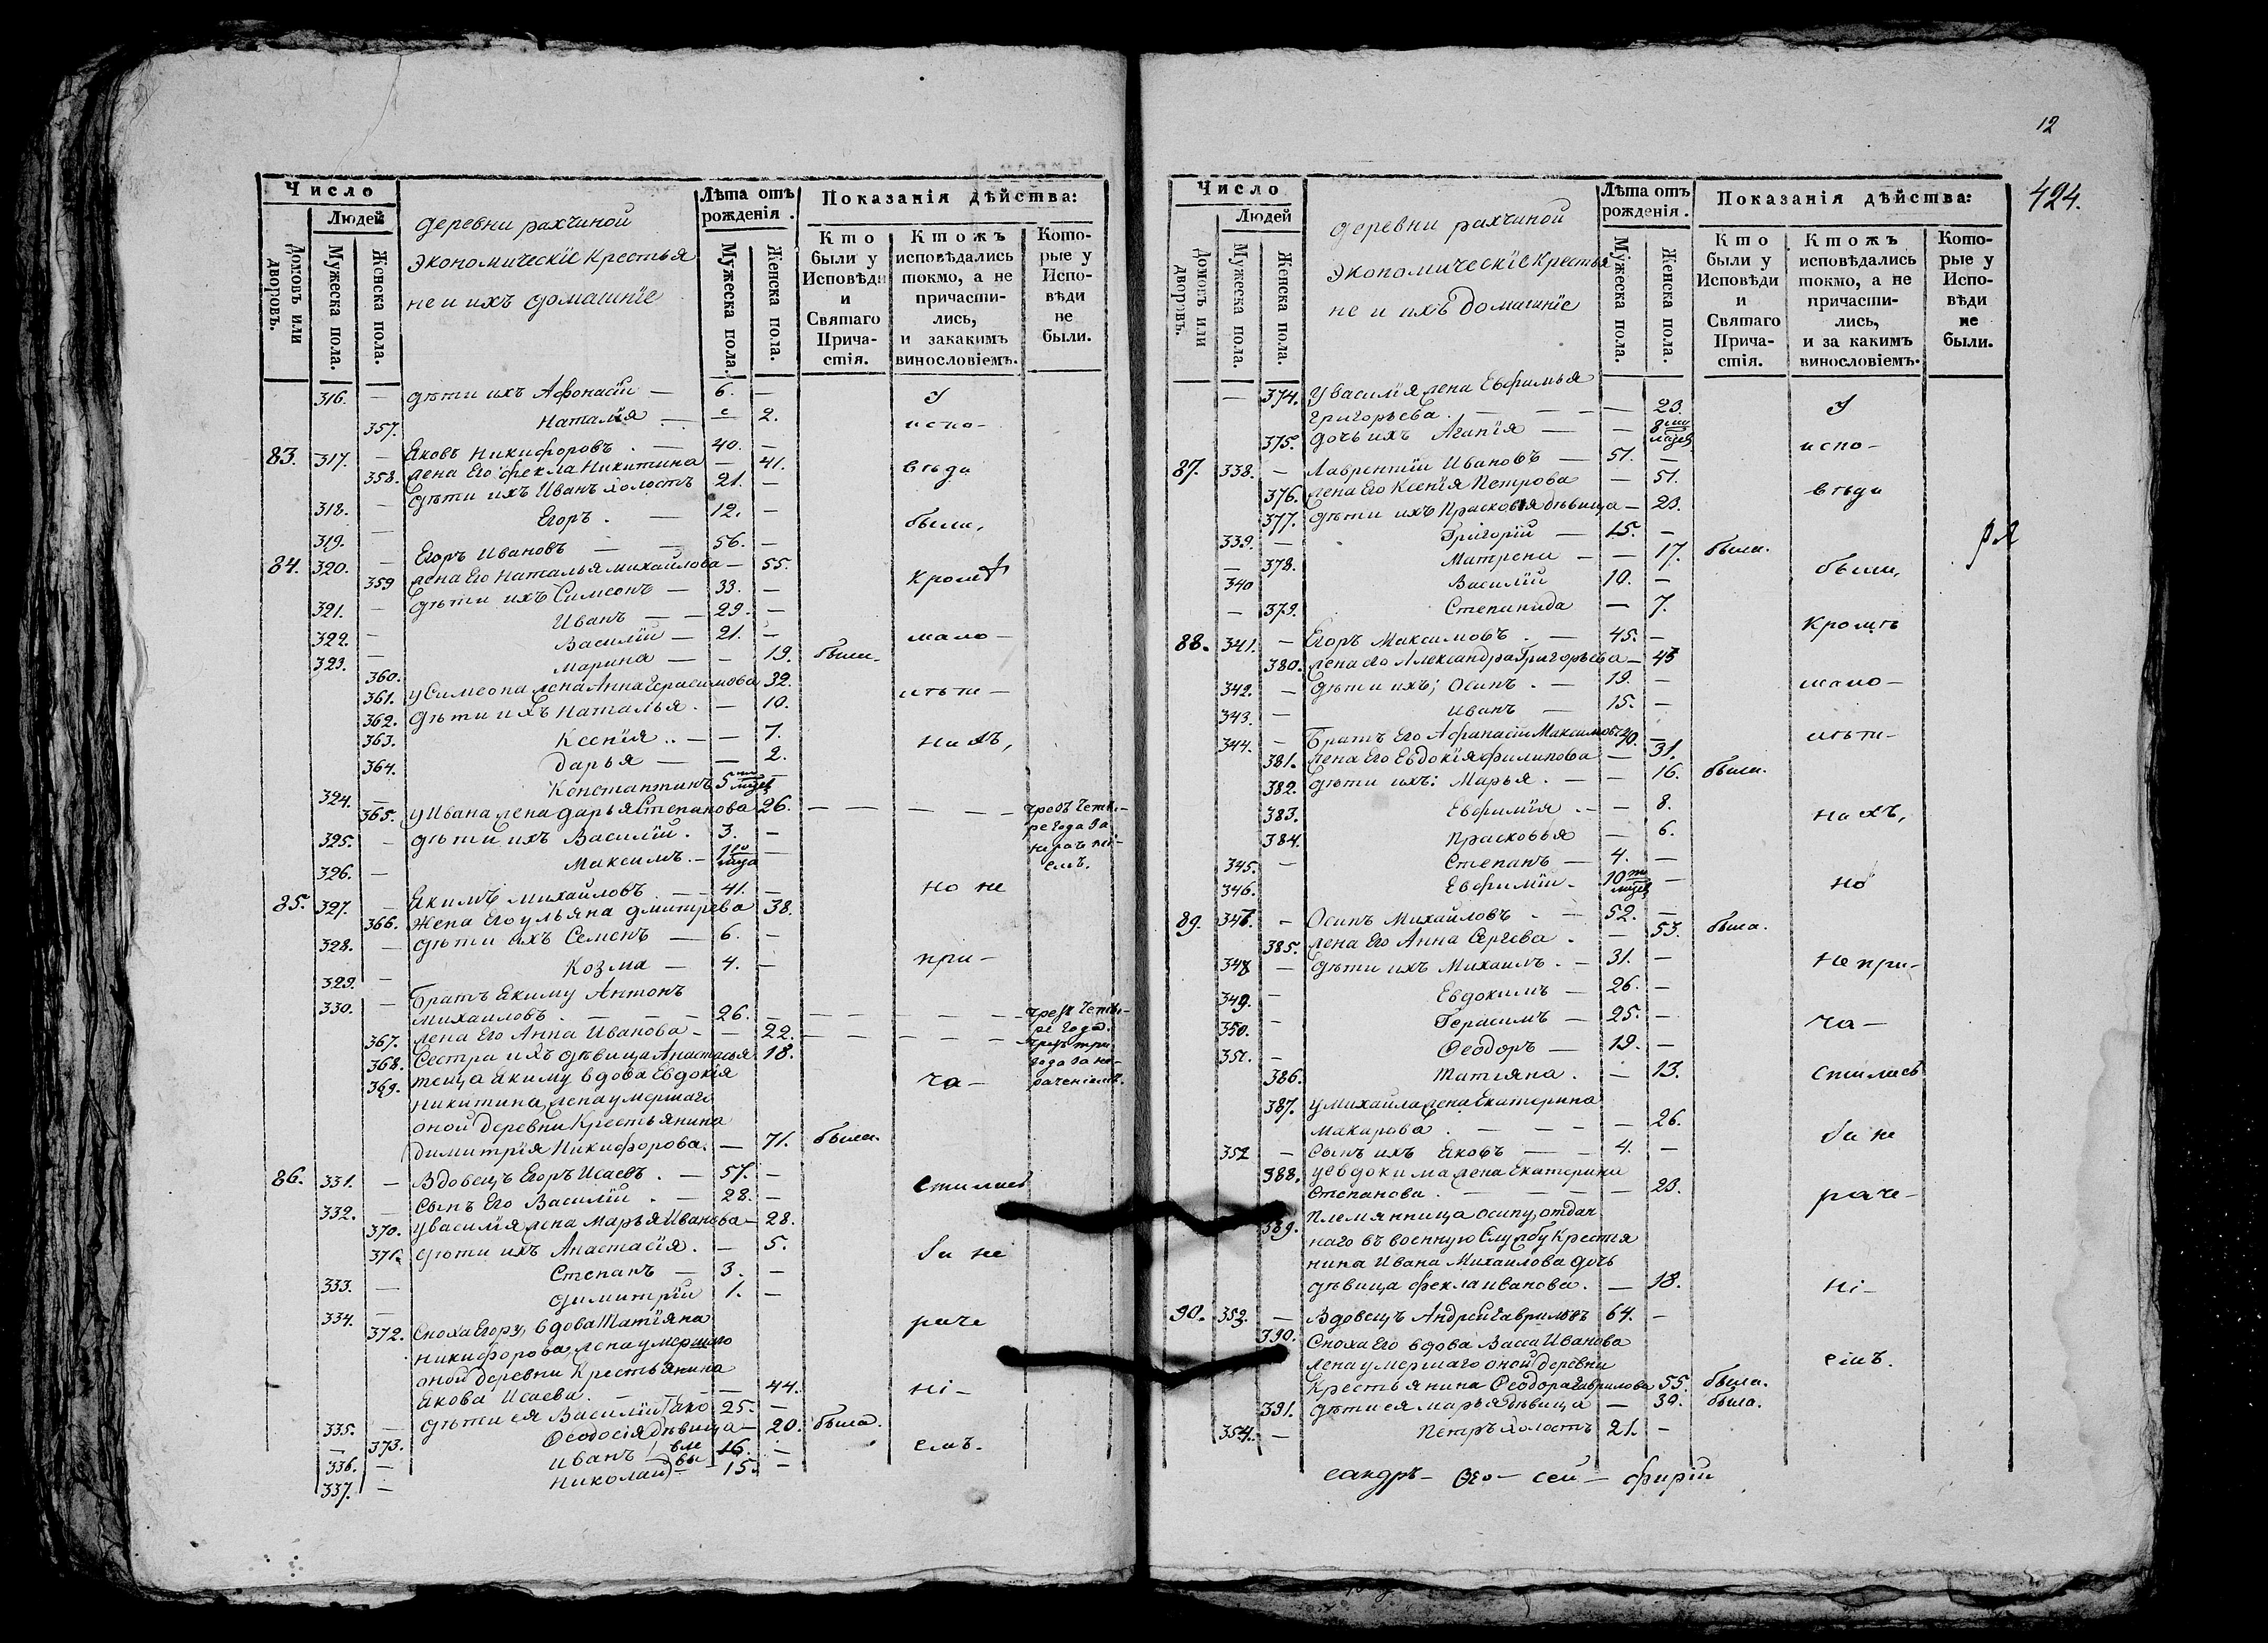 Число
Людей
Домовъ или дворовъ.
Мужеска пола.
Женска пола.
деревни рахчиной
экономическїе крестья
не и ихъ домашнїе
Лѣта отъ рожденія.
Мужеска пола.
Женска пола.
Показанія дѣйства:
Кто были у Исповѣди и Святаго Прича-стія.
Ктожъ исповѣдались токмо, а не причасти-лись, и закакимъ винословіемъ.
Кото-рые у Испо-вѣди не были.
316. — дѣти ихъ Афонасїи — 6. —
357. Наталїя — 2. испо-
83. 317. — Яковъ Никифоровъ. — 40. —
358. жена Его Фекла Никитина — 41. вѣда
318. — дѣти ихъ Иванъ холостъ 21. —
319. — Егоръ. — 12. — были,
84. 320. — Егоръ Ивановъ — 56. —
359 жена Его Наталья михайлова — 55. кромѣ
321. — дѣти ихъ Симеонъ — 33. —
322. — Иванъ — 29. —
323. — Василїй — 21. — мало-
360. марина — — 19. была.
361. у Симеона жена Анна Герасимова 32. лѣтн-
362. дѣти ихъ Наталья. — 10.
363. Ксенїя.. — — 7. нихъ,
364. дарья — — 2.
324. — Константинъ 5 —
365. у Ивана жена дарья Степанова 26. — — — — чрезъ четы-
325. — дѣти ихъ Василїй. 3. — ре года за
326. — Максимъ. — 1 — нераче нї-
емъ.
85. 327. — Якимъ михайловъ — 41. — но не
366. Жена Его ульяна дмитрева 38.
328. — дѣти ихъ Семенъ — 6. —
329. — Козма — 4. — при-
330. — Братъ Якиму Антонъ
михаиловъ. — — — 26. — — — — — чрезъ четы-
367. жена Его Анна Иванова — — 22. — — — — ре года.
368. Сестра ихъ дѣвица Анастасья 18. чрезъ три
369. теща Якиму вдова Евдокїя ча- года за не-
никитина, жена умершаго раченіемъ.
оной деревни Крестьянина
димитрїя Никифорова. — 71. была.
86. 331. — Вдовецъ Егоръ Исаевъ. — 57. — стились
332. — Сынъ Его Василїй. — 28. —
370. у василїя жена марья Иванова — 28.
371. дѣти ихъ Анастасїя. — 5. За не
333. — Степанъ — 3. —
334. — димитрїи 1. —
372. Сноха Егору, вдова Татїяна раче
никифорова, жена умершаго
оной деревни Крестьянина
Якова Исаева. — — — 44. ні-
335. — дѣти ея Василїй 25. —
— 373. Ѳеодосїя дѣвица — 20. была.
336. — иванъ 16. — емъ.
337. — николай 15. —
12
424.
Число
Людей
Домовъ или дворовъ.
Мужеска пола.
Женска пола.
деревни рахчиной
экономическїе крестья
не и ихъ домашнїе
Лѣта отъ рожденія.
Мужеска пола.
Женска пола.
Показанія дѣйства:
Кто были у Исповѣди и Святаго Прича-стія.
Ктожъ исповѣдались токмо, а не причасти-лись, и за какимъ винословіемъ.
Кото-рые у Испо-вѣди не были.
— 374. у василїя жена Евфимья
григорьева. — — — — 23.
375. дочь ихъ Агапїя — — 8 испо-
87. 338. — Лаврентїи Ивановъ — 51. —
376. жена Его Ксенїя Петрова — 51. вѣда
377. дѣти ихъ Прасковїя дѣвица — 23.
339. — Григорїй — 15. — ря
— 378. Матрена — — 17. была.
340 Василїй 10. — были,
— 379. Степанида — 7.
88. 341. — Егоръ Максимовъ. — 45. — Кромѣ
380. жена его Александра Григорьева — 45
342. — дѣти ихъ; Осипъ. — 19. — мало-
343. — иванъ — 15. —
344. — Братъ Его Афанасїи Максимовъ 40. — лѣтн-
381. жена Его Евдокїя филипова — 31.
382. дѣти ихъ: Марья. — — 16. была.
383. Евфимїя. — — 8.
384. прасковья — 6. нихъ,
345. — Степанъ — 4. —
346. Евфимїи — 10 — но
89. 347. — Осипъ Михайловъ. — 52. —
385. жена Его Анна Сергева. — 53. была.
348 — дѣти ихъ Михаилъ. — 31. — не при-
349. — Евдокимъ — 26. —
350. — Герасимъ — 25. — ча-
351. — Ѳеодоръ — 19. —
386. татьяна. — 13. стились
387. у михаила жена Екатерина
макарова. — — — — 26.
352 — Сынъ ихъ Яковъ — — 4. — За не
388. у евдокима жена Екатерина
Степанова. — — — — 23. раче-
389. племянница осипу, отдан
наго въ военную службу Крестья
нина Ивана Михаилова дочь
дѣвица фекла иванова. — 18. ні-
90. 353. — Вдовецъ Андрей гавриловъ 64. —
390. Сноха Его вдова Васса Иванова
жена умершаго оной деревни емъ.
Крестьянина Ѳеодора гаврилова 55. была.
391. дѣти ея марья дѣвица — 39. была.
354. — петръ холостъ 21. —
сандръ — Ѳео — сеи — фирїи